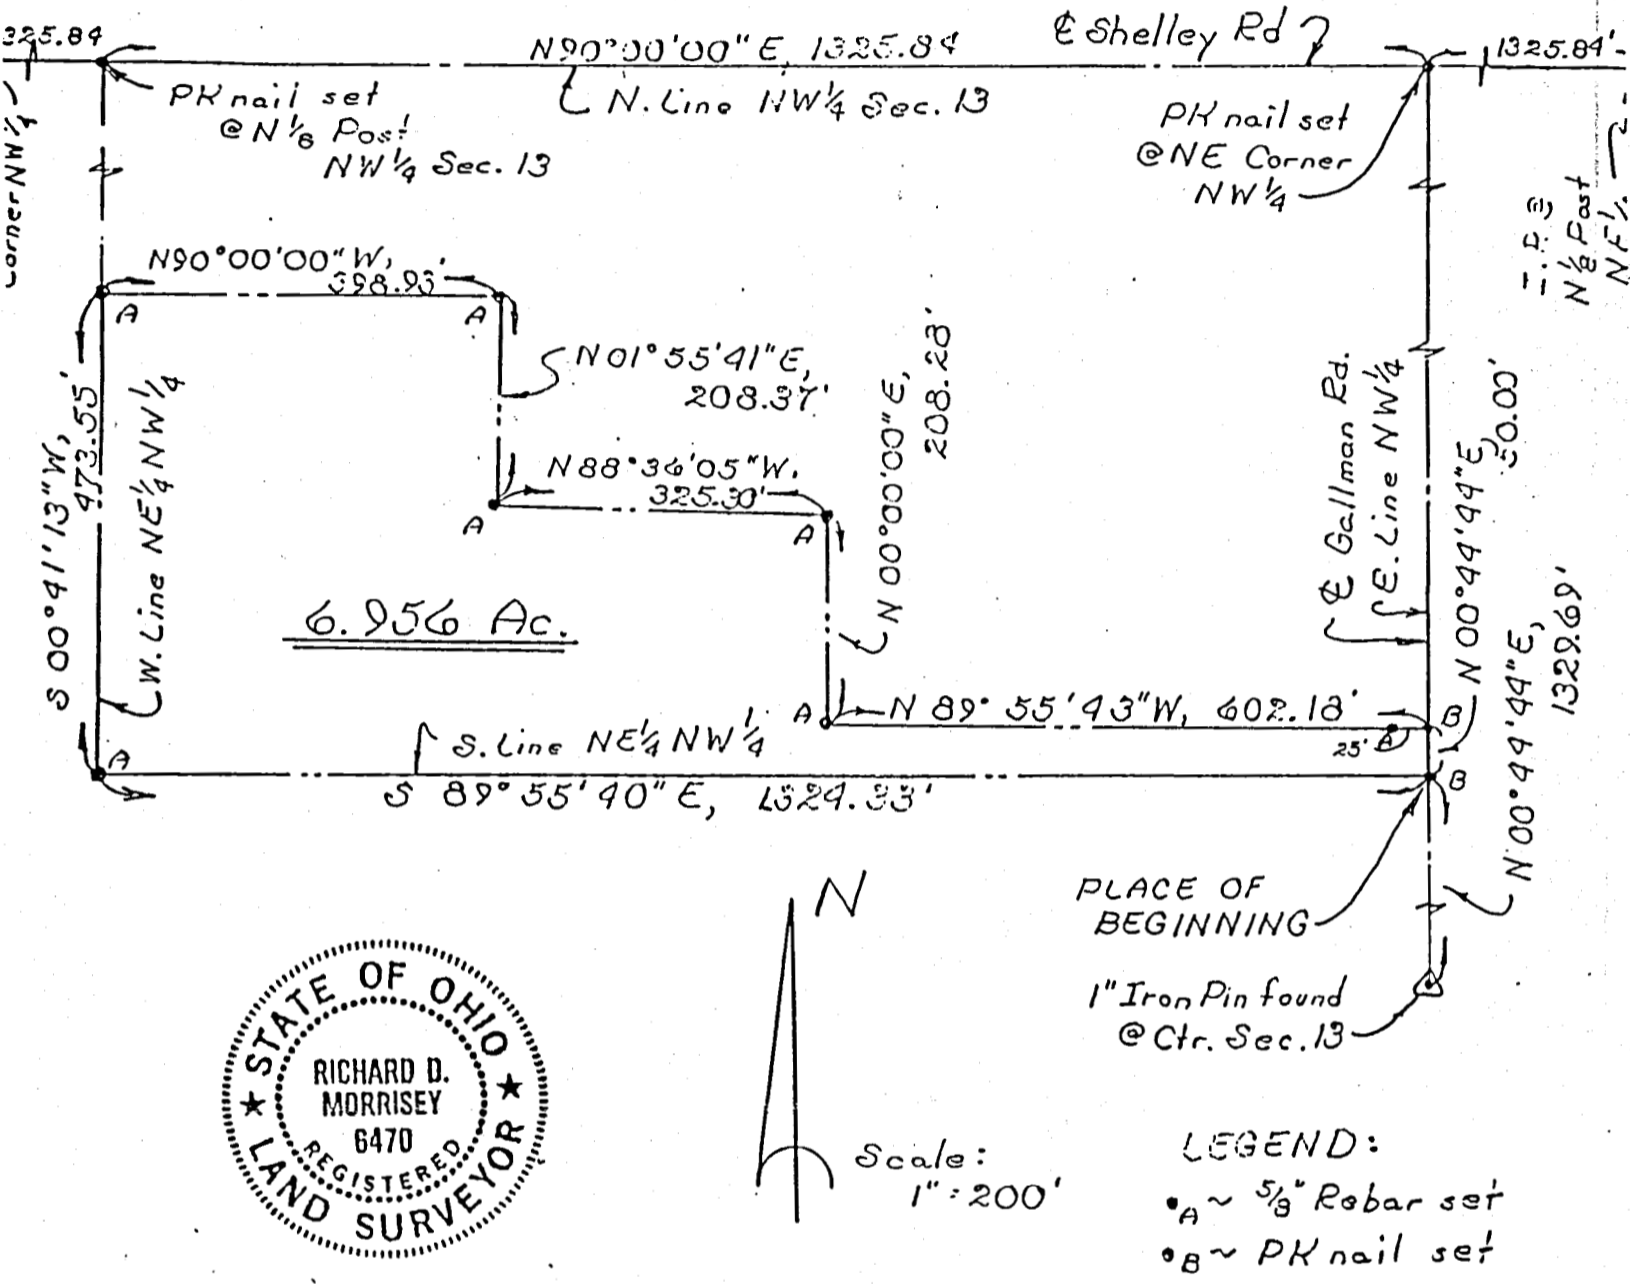 325.84
N90°00'00" E, 1325.84
₵ Shelley Rd
1325.84'
PK nail set
@ N 1/8 Post
NW 1/4 Sec. 13
N. Line NW 1/4 Sec. 13
PK nail set
@NE Corner
NW 1/4
Corner NW 1/4
N 1/8 Post
N90°00'00" W,
398.93'
A
A
N01°55'41"E,
208.37'
N 00°00'00" E,
208.28'
S 00°41'13" W,
473.55'
W. Line NE 1/4 NW 1/4
N88°36'05" W.
325.30'
A
A
₵ Gallman Rd.
E. Line NW 1/4
N 00°44'44" E,
50.00'
N 00°44'44" E,
1329.69'
6.956 Ac.
A
N 89° 55' 43" W, 602.18'
B
25' A
S. Line NE 1/4 NW 1/4
A
S 89° 55' 40" E, 1324.33'
B
PLACE OF
BEGINNING
1" Iron Pin found
@ Ctr. Sec. 13
N
Scale:
1" = 200'
STATE OF OHIO
RICHARD D.
MORRISEY
6470
REGISTERED
LAND SURVEYOR
LEGEND:
•A ~ 5/8" Rebar set
•B ~ PK nail set